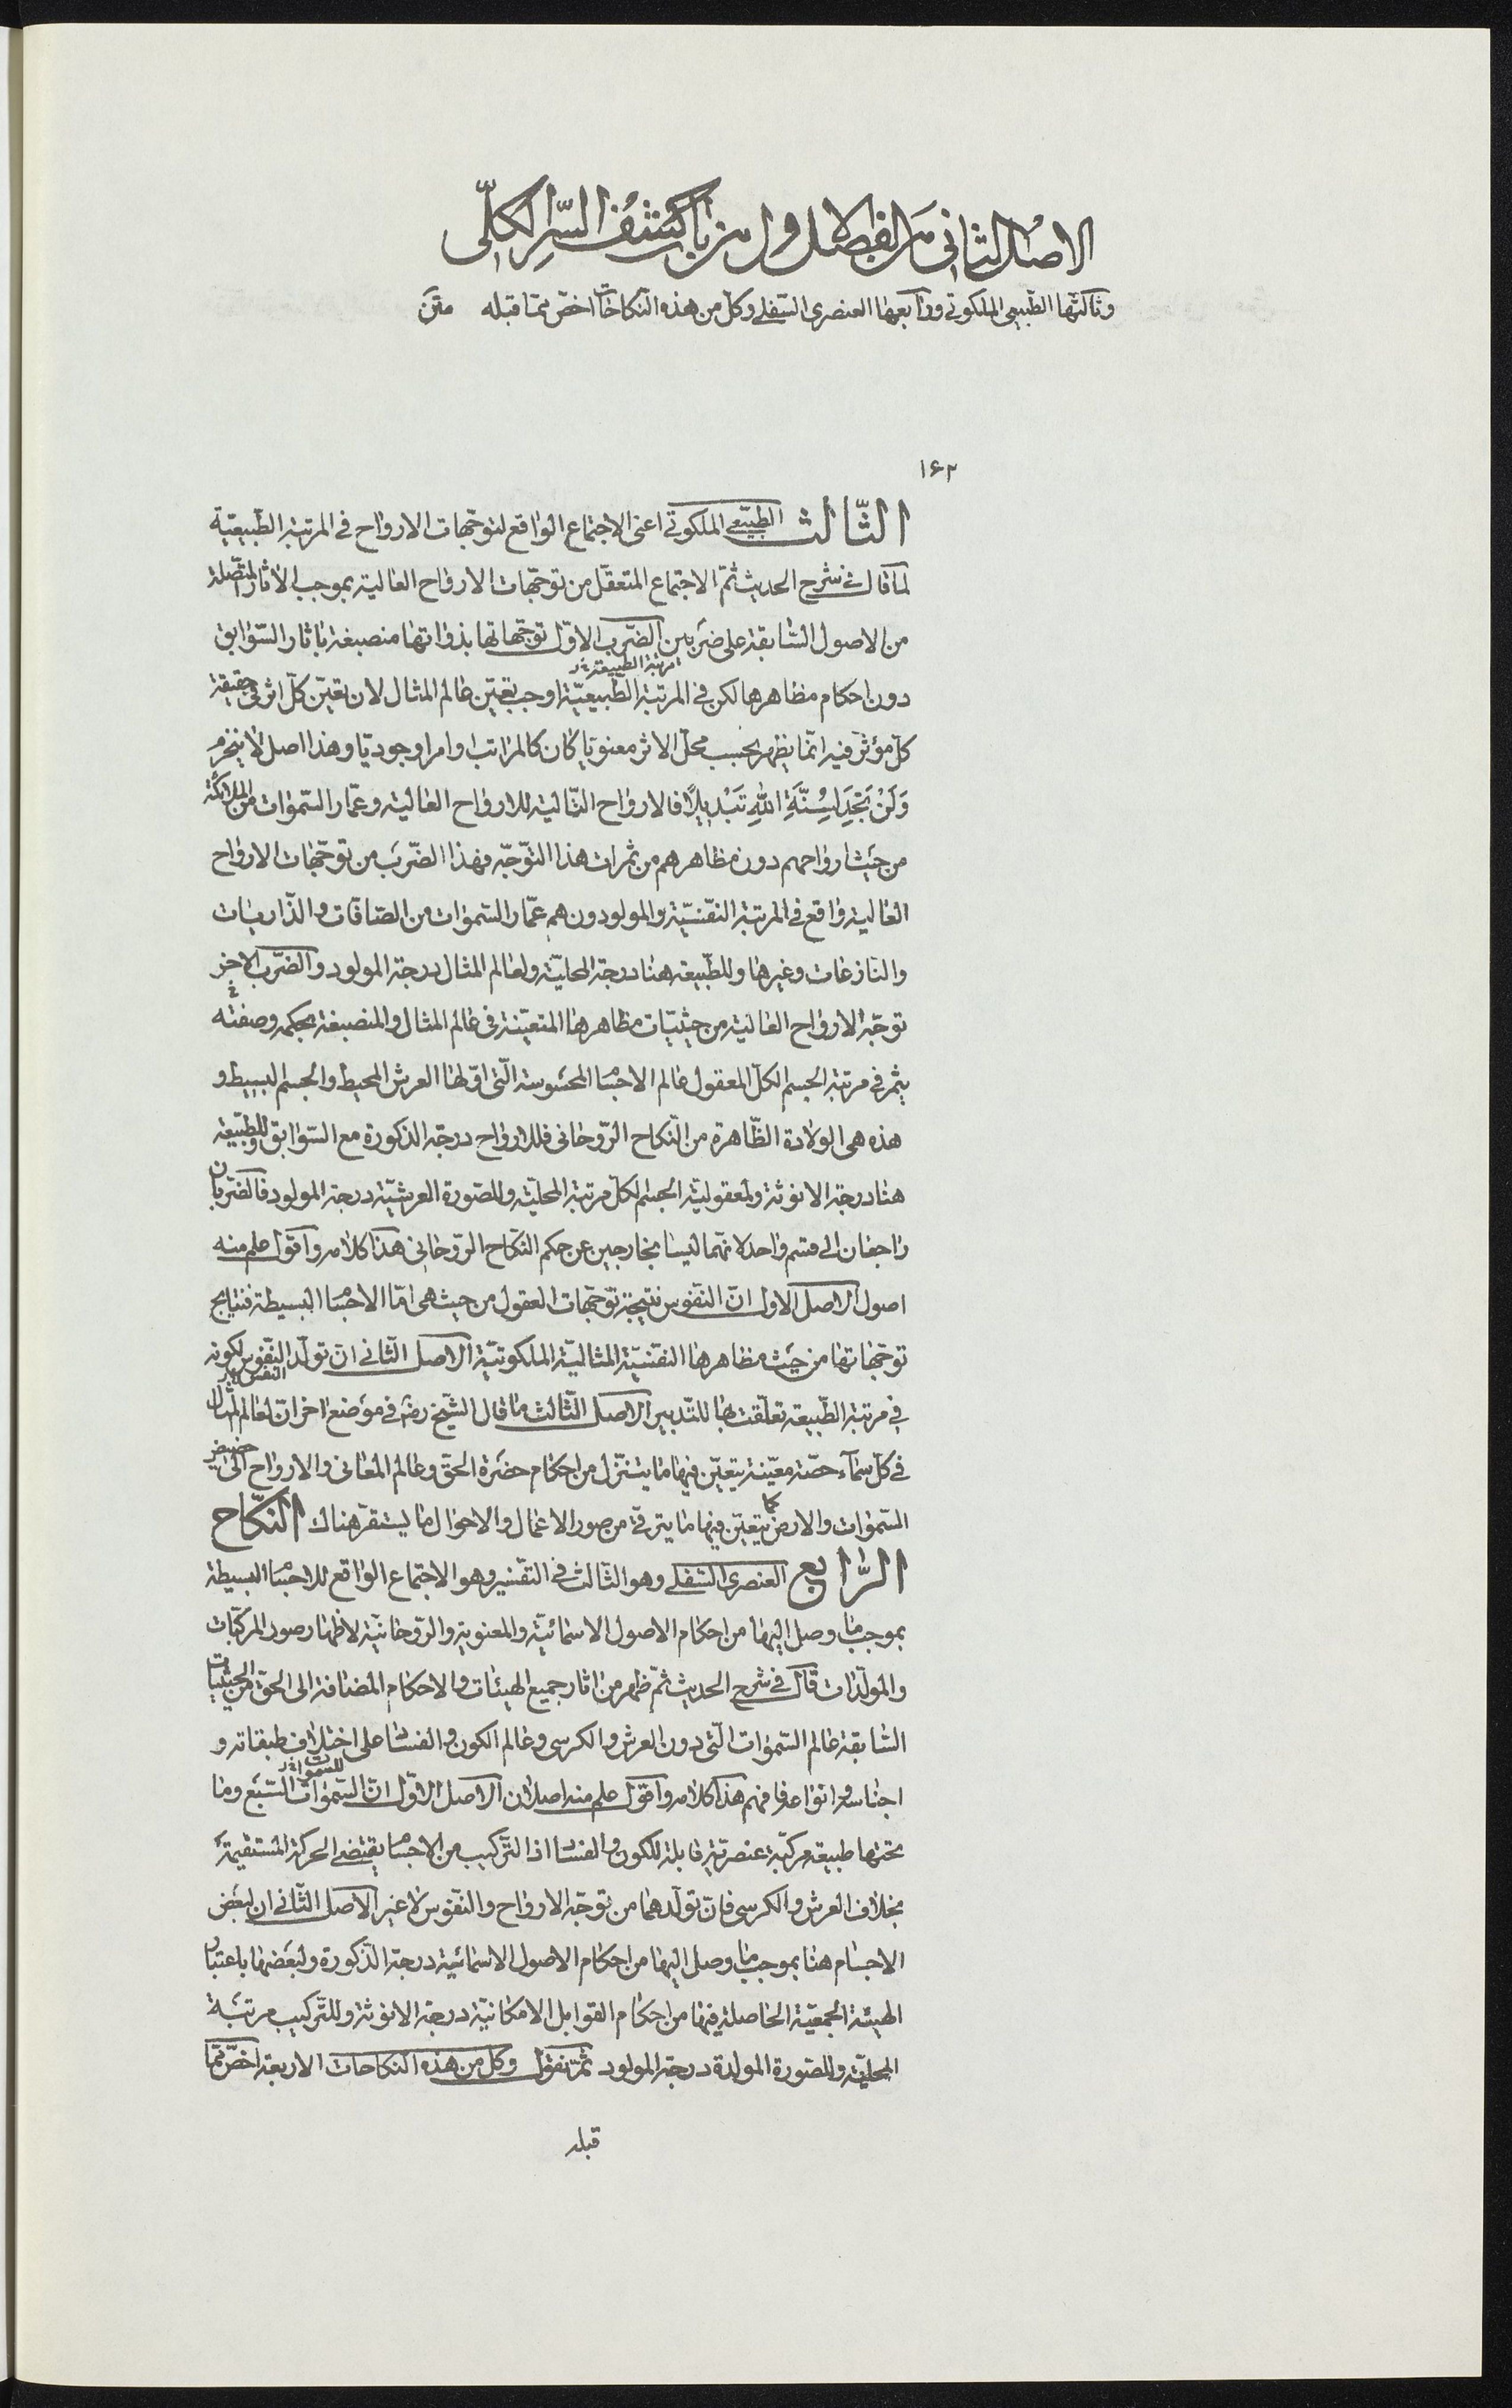 الاصل الثانى من الفصل الاول من باب كشف السّر الكلّى
وثالثها الطّبيعى الملكوتى ورابعها العنصرى السّفلى وكلّ من هذه النّكاحات اخصّ ممّا قبله متن
١۶٢
الثّالث الطّبيعى الملكوتى اعنى الاجتماع الواقع لتوجّهات الارواح فى المرتبة الطّبيعيّة
لما قال فى شرح الحديث ثمّ الاجتماع المتعقّل من توجّهات الارواح العالية بموجب الاثار المتّصلة
من الاصول السّابقة على ضربين الضّرب الاوّل توجّهاتها بذواتها منصبغة باثار السّوابق
مرتبة الطبيعة خر
دون احكام مظاهرها لكن فى المرتبة الطّبيعيّة اوجب تعيّن عالم المثال لان تعيّن كلّ اثر فى حقيقة
كلّ مؤثّر فيه انّما يظهر بحسب محلّ الاثر معنويّا كان كالمراتب او امرا وجوديّا وهذا اصل لا ينخرم
وَلَنْ تَجِدَ لِسُنَّةِ اللهِ تَبْدِيلًا فالارواح التّالية للارواح العالية وعمّار السّموات من الملائكة
من حيث ارواحهم دون مظاهرهم من ثمرات هذا التّوجّه فهذا الضّرب من توجّهات الارواح
العالية واقع فى المرتبة النّفسيّة والمولودون هم عمّار السّموات من الصّافّات والذّاريات
والنّازعات وغيرها وللطّبيعة هنا درجة المحليّة ولعالم المثال درجة المولود والضّرب الاخر
توجّه الارواح العالية من حيثيّات مظاهرها المتعيّنة فى عالم المثال والمنصبغة بحكمه وصفته
يثمر فى مرتبة الجسم الكلّ المعقول عالم الاجسام المحسوسة الّتى اوّلها العرش المحيط والجسم البسيط و
هذه هى الولادة الظّاهرة من النّكاح الرّوحانى فللارواح درجة الذكورة مع السّوابق وللطّبيعة
هنا درجة الانوثة ولمعقوليّة الجسم لكلّ مرتبة المحليّة وللصّورة العرشيّة درجة المولود فالضّربان
راجعان الى قسم واحد لانّهما ليسا بخارجين عن حكم النّكاح الرّوحانى هذا كلامه واقول علم منه
اصول الاصل الاول انّ النّفوس نتيجة توجّهات العقول من حيث هى امّا الاجسام البسيطة فنتايج
توجّهاتها من حيث مظاهرها النّفسيّة المثاليّة الملكوتيّة الاصل الثّانى انّ تولّد النّفوس لكونه
النفس خر
فى مرتبة الطّبيعة تعلّقت بها للتّدبير الاصل الثّالث ما قال الشّيخ رض فى موضع اخر انّ لعالم المثال
فى كلّ سماء حصّة معيّنة يتعيّن فيها ما يتنزّل من احكام حضرة الحقّ وعالم المعانى والارواح الى حضيض
السّموات والارض كما يتعيّن فيها ما يترقّى من صور الاعمال والاحوال ما يستقرّ هناك النّكاح
الرّابع العنصرى السّفلى وهو الثّالث فى التّفسير وهو الاجتماع الواقع للاجسام البسيطة
بموجب ما وصل اليها من احكام الاصول الاسمائيّة والمعنوية والرّوحانيّة لاظهار صور المركّبات
والمولّدات قال فى شرح الحديث ثمّ ظهر من اثار جميع الهيئات والاحكام المضافة الى الحقّ من الحيثيّات
السّابقة عالم السّموات الّتى دون العرش والكرسى وعالم الكون والفساد على اختلاف طبقاته و
اجناسه وانواعه فافهم هذا كلامه واقول علم منه اصلان الاصل الاوّل انّ السّموات السّبع وما
للسموات خر
تحتها طبيعة مركّبة عنصريّة قابلة للكون والفساد اذ التّركيب من الاجسام يقتضى الحركة المستقيمة
بخلاف العرش والكرسى فانّ تولّدهما من توجّه الارواح والنّفوس لا غير الاصل الثّانى ان لبعض
الاجسام هنا بموجب ما وصل اليها من احكام الاصول الاسمائيّة درجة الذّكورة ولبعضها باعتبار
الهيئة الجمعيّة الحاصلة فيها من احكام القوابل الامكانيّة درجة الانوثة وللتّركيب مرتبة
المحليّة وللصّورة المولدة درجة المولود ثمّ نقول وكلّ من هذه النكاحات الاربعة اخصّ ممّا
قبله